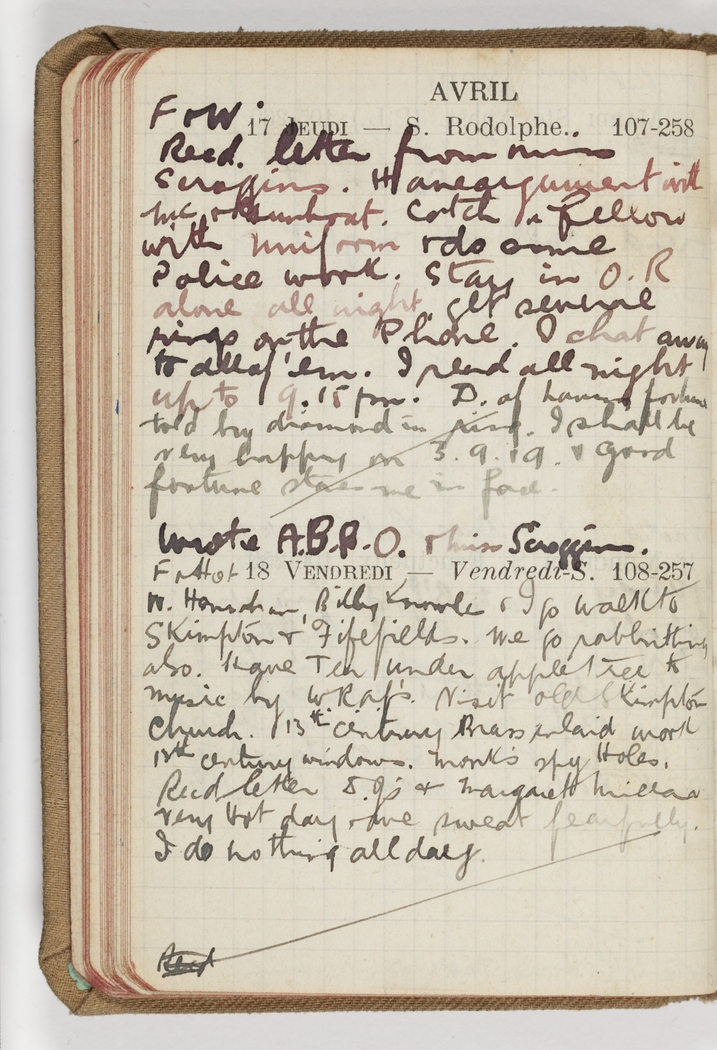 AVRIL
F & W.
17 JEUDI — S. Rodolphe. 107-258
Recd. letter from miss
Scroggins. Have argument with
Catch a fellow
with uniform & do some
Police work. Stay in O.R
alone all night. get several
rings on the Phone. I chat away
to all of 'em. I read all night
up to 9.15 pm. D. of having fortune
told by diamond in ring. I shall be
very happy on 3.9.19. & good
fortune me in face.
Wrote A.B.R.O. & miss Scroggins.
F & Hot 18 VENDREDI — Vendredi-S. 108-257
Billy Knowle & I go walk to
Skimpton & Fifefields. We go rabbitting
also. Have Tea under apple tree to
music by WRAF's. Visit old Skimpton
Church. 13th century Brass inlaid work
13th century windows. Monk's spy Holes.
Recd letter & Margarett
very Hot day & we sweat fearfully.
I do nothing all day.
Recd